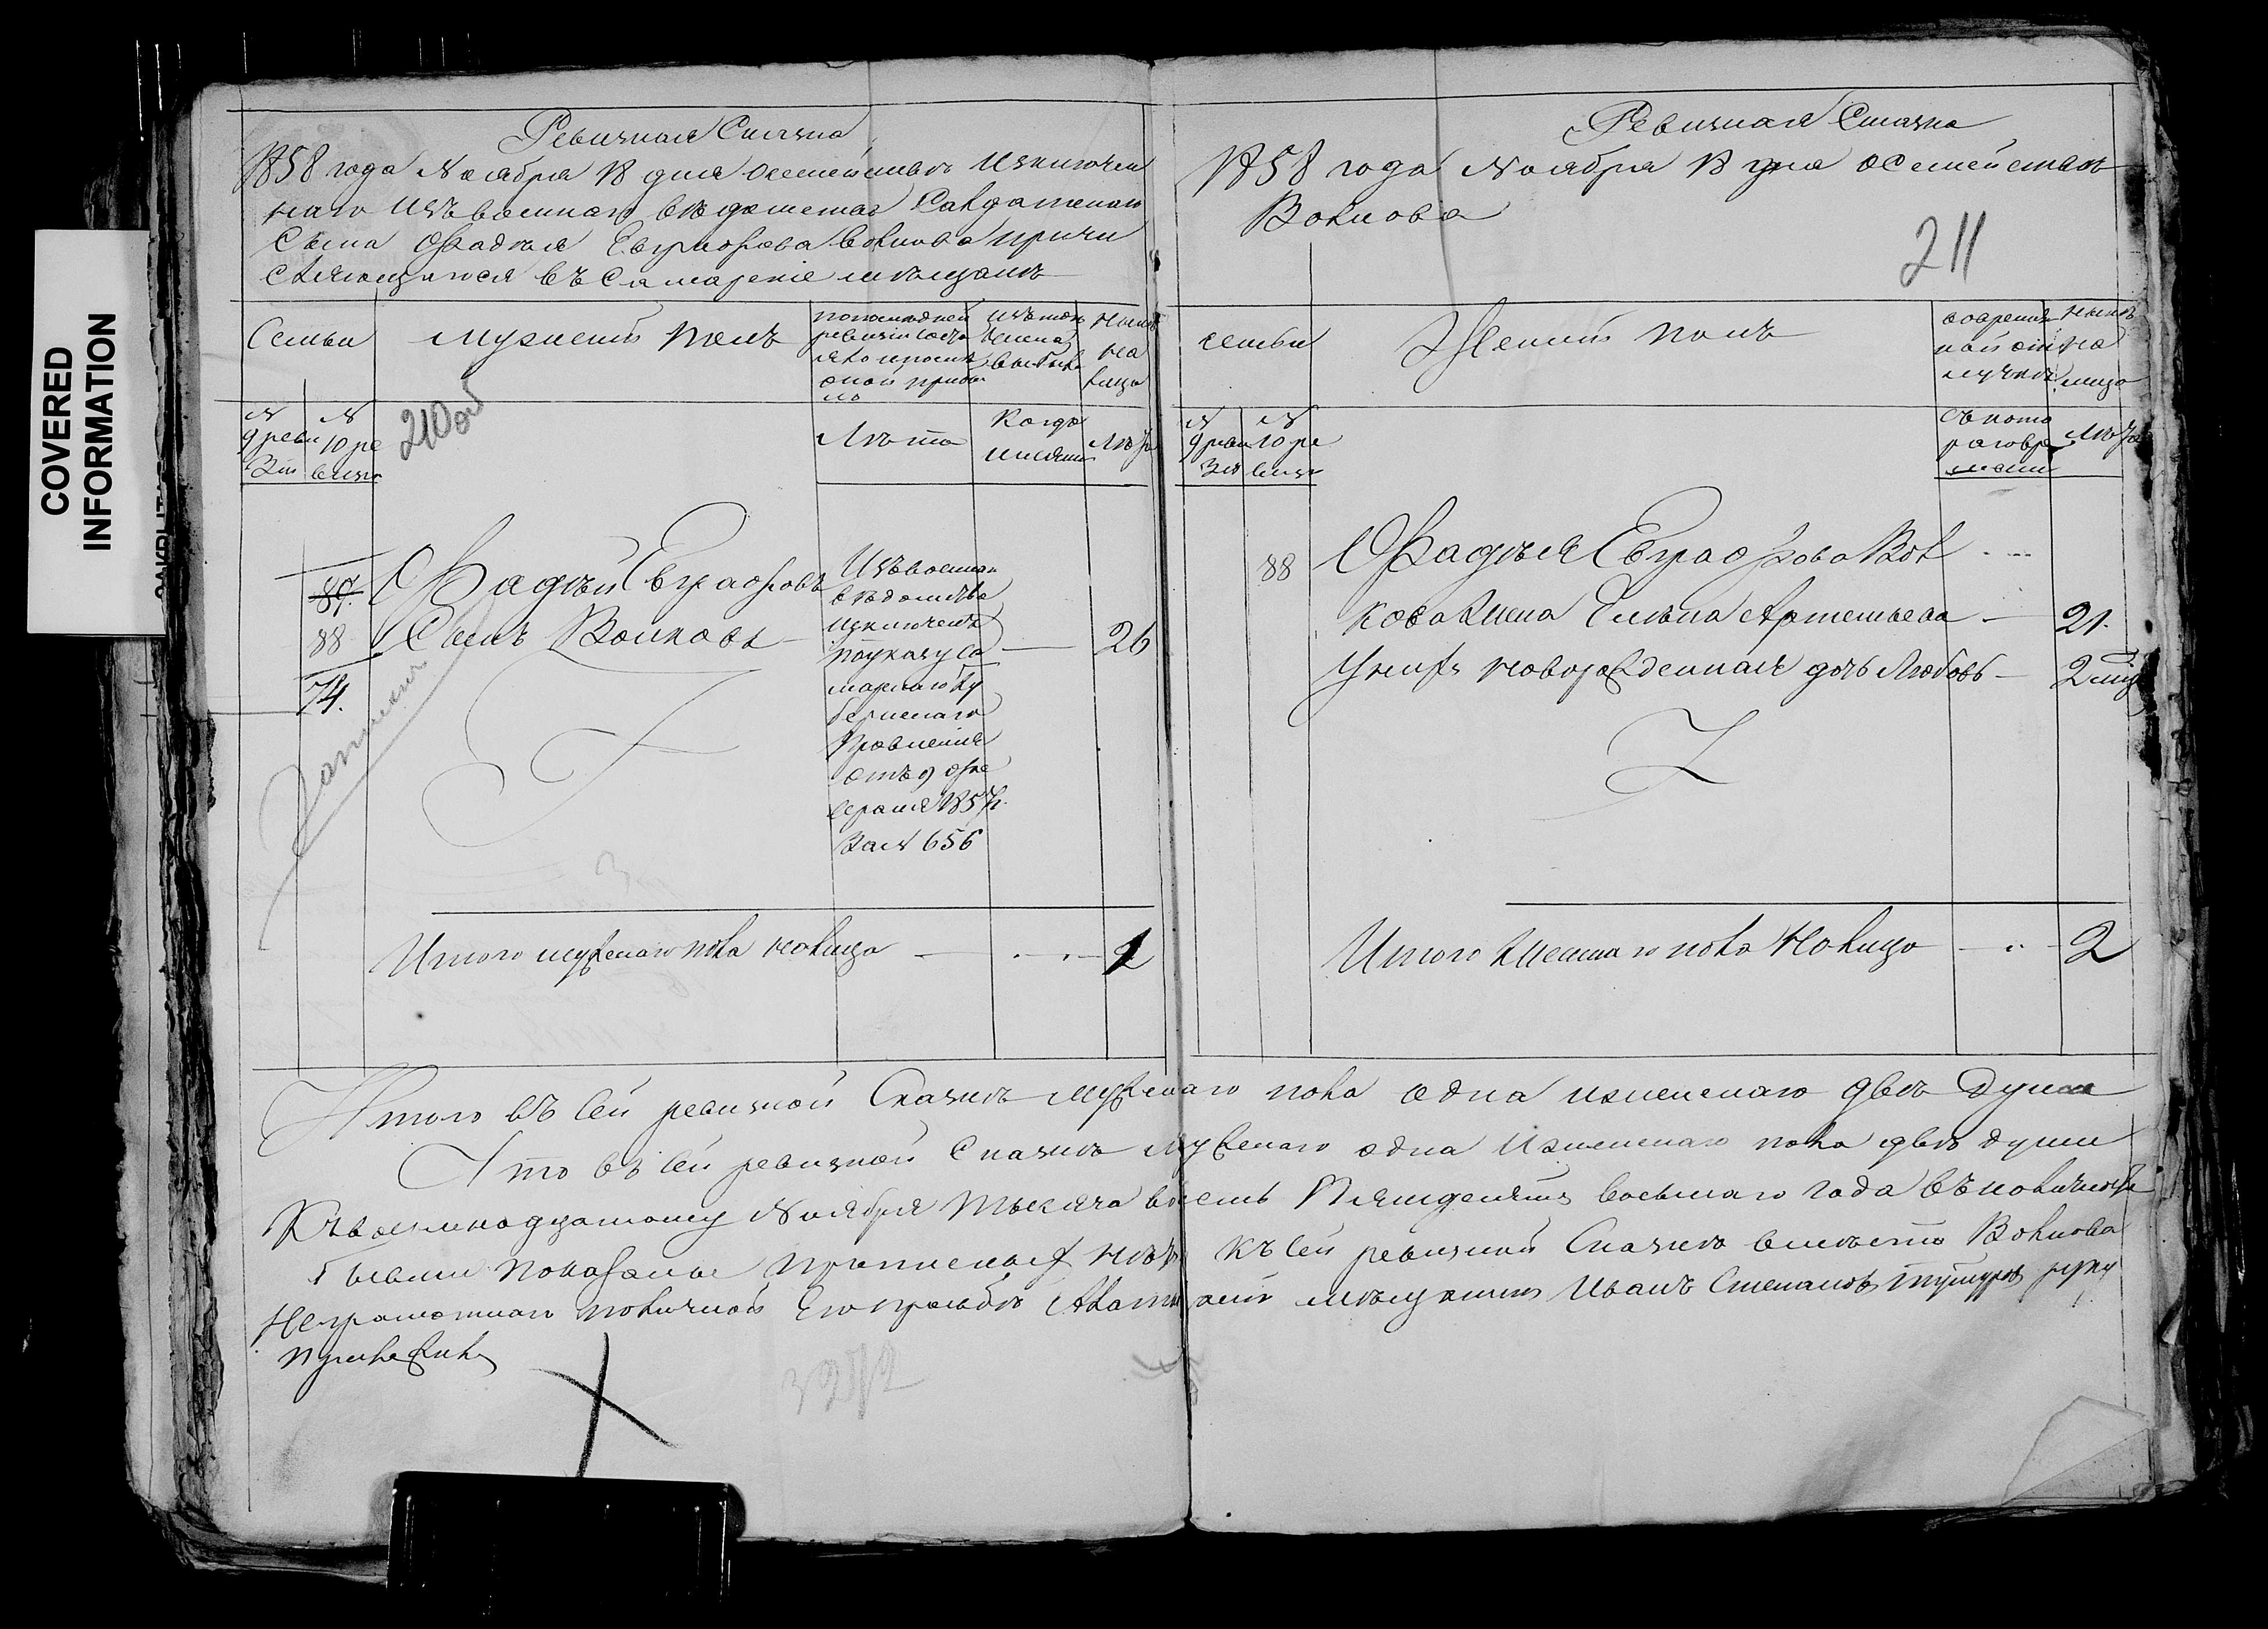 COVERED
INFORMATION
Ревизная Сказка
1858 года Ноября 18 дня о семействѣ Изключен
наго Изъ военнаго вѣдомства Салдатскаго
Сына Фадѣя Евграфова Волкова причи
сляющагося въ Самарскіе мѣщане
Семьи
Мужескій полъ
по последней
ревизіи состо
яло и после
оной прибы
ло
изъ того
числа
выбыло
Нынѣ
на
лицо
№
9 реви
зіи
№
10 ре
визіи
210 об
Лѣта
Когда
имянно
Лѣта
87.
88
74.
Фадѣй Евграфовъ
Сынъ Волковъ
Изъ военнаго
вѣдомства
изключенъ
по указу Са
марскаго Гу
бернскаго
Правленія
отъ 9 фе
враля 1857 г.
за № 656
26
Итого мужескаго пола на лицо 1
Ревизная Сказка
1858 года Ноября 18 дня о семействѣ
Волкова
211
семьи
Женскій полъ
во времян
ной отлучкѣ
Нынѣ
на
лицо
№
9 реви
зіи
№
10 ре
визіи
съ кото
раго вре
мени
Лѣта
88
Фадѣя Евграфова Вол
кова жена Елена Артемьева 21.
У нихъ новорожденная дочь Любовь 2 мѣ
Итого женскаго пола на лицо 2
Итого въ сей ревизной Сказкѣ мужескаго пола одна и женскаго двѣ души
Что въ сей ревизной Сказкѣ мужескаго одна и женскаго пола двѣ души
Къ восемнадцатому Ноября Тысяча восемь Пятдесятъ восьмаго года въ наличности
бывши показаны прописныхъ нѣтъ къ сей ревизной Сказкѣ вместо Волкова
неграмотнаго по личной Его просьбѣ мѣщанинъ Иванъ Степановъ руку
приложилъ
3272